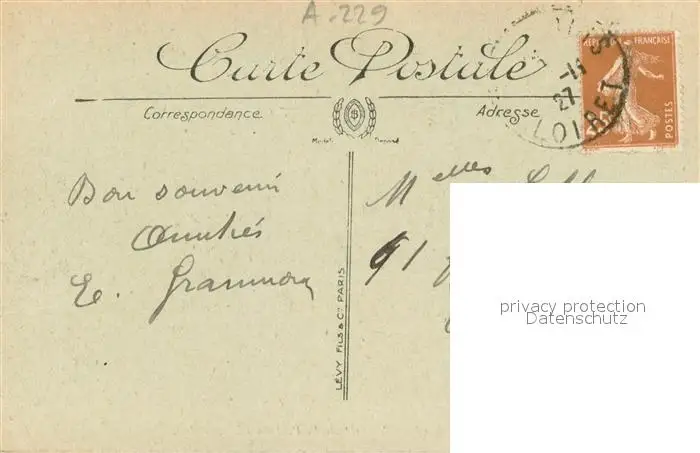 A-229
Carte Postale
Correspondance
Adresse
RÉPUBLIQUE FRANÇAISE
POSTES
27 -11
LOIRET
Bon souvenir
Amitiés
E.
Melles
91
LÉVY FILS & Cie PARIS
privacy protection
Datenschutz